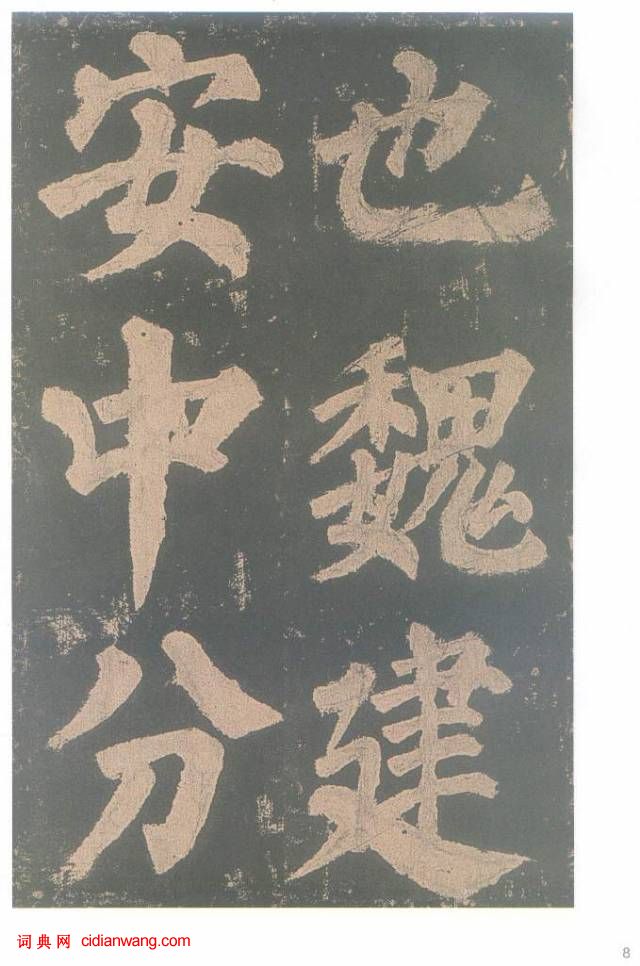 也魏建
安中分
词典网 cidianwang.com
8